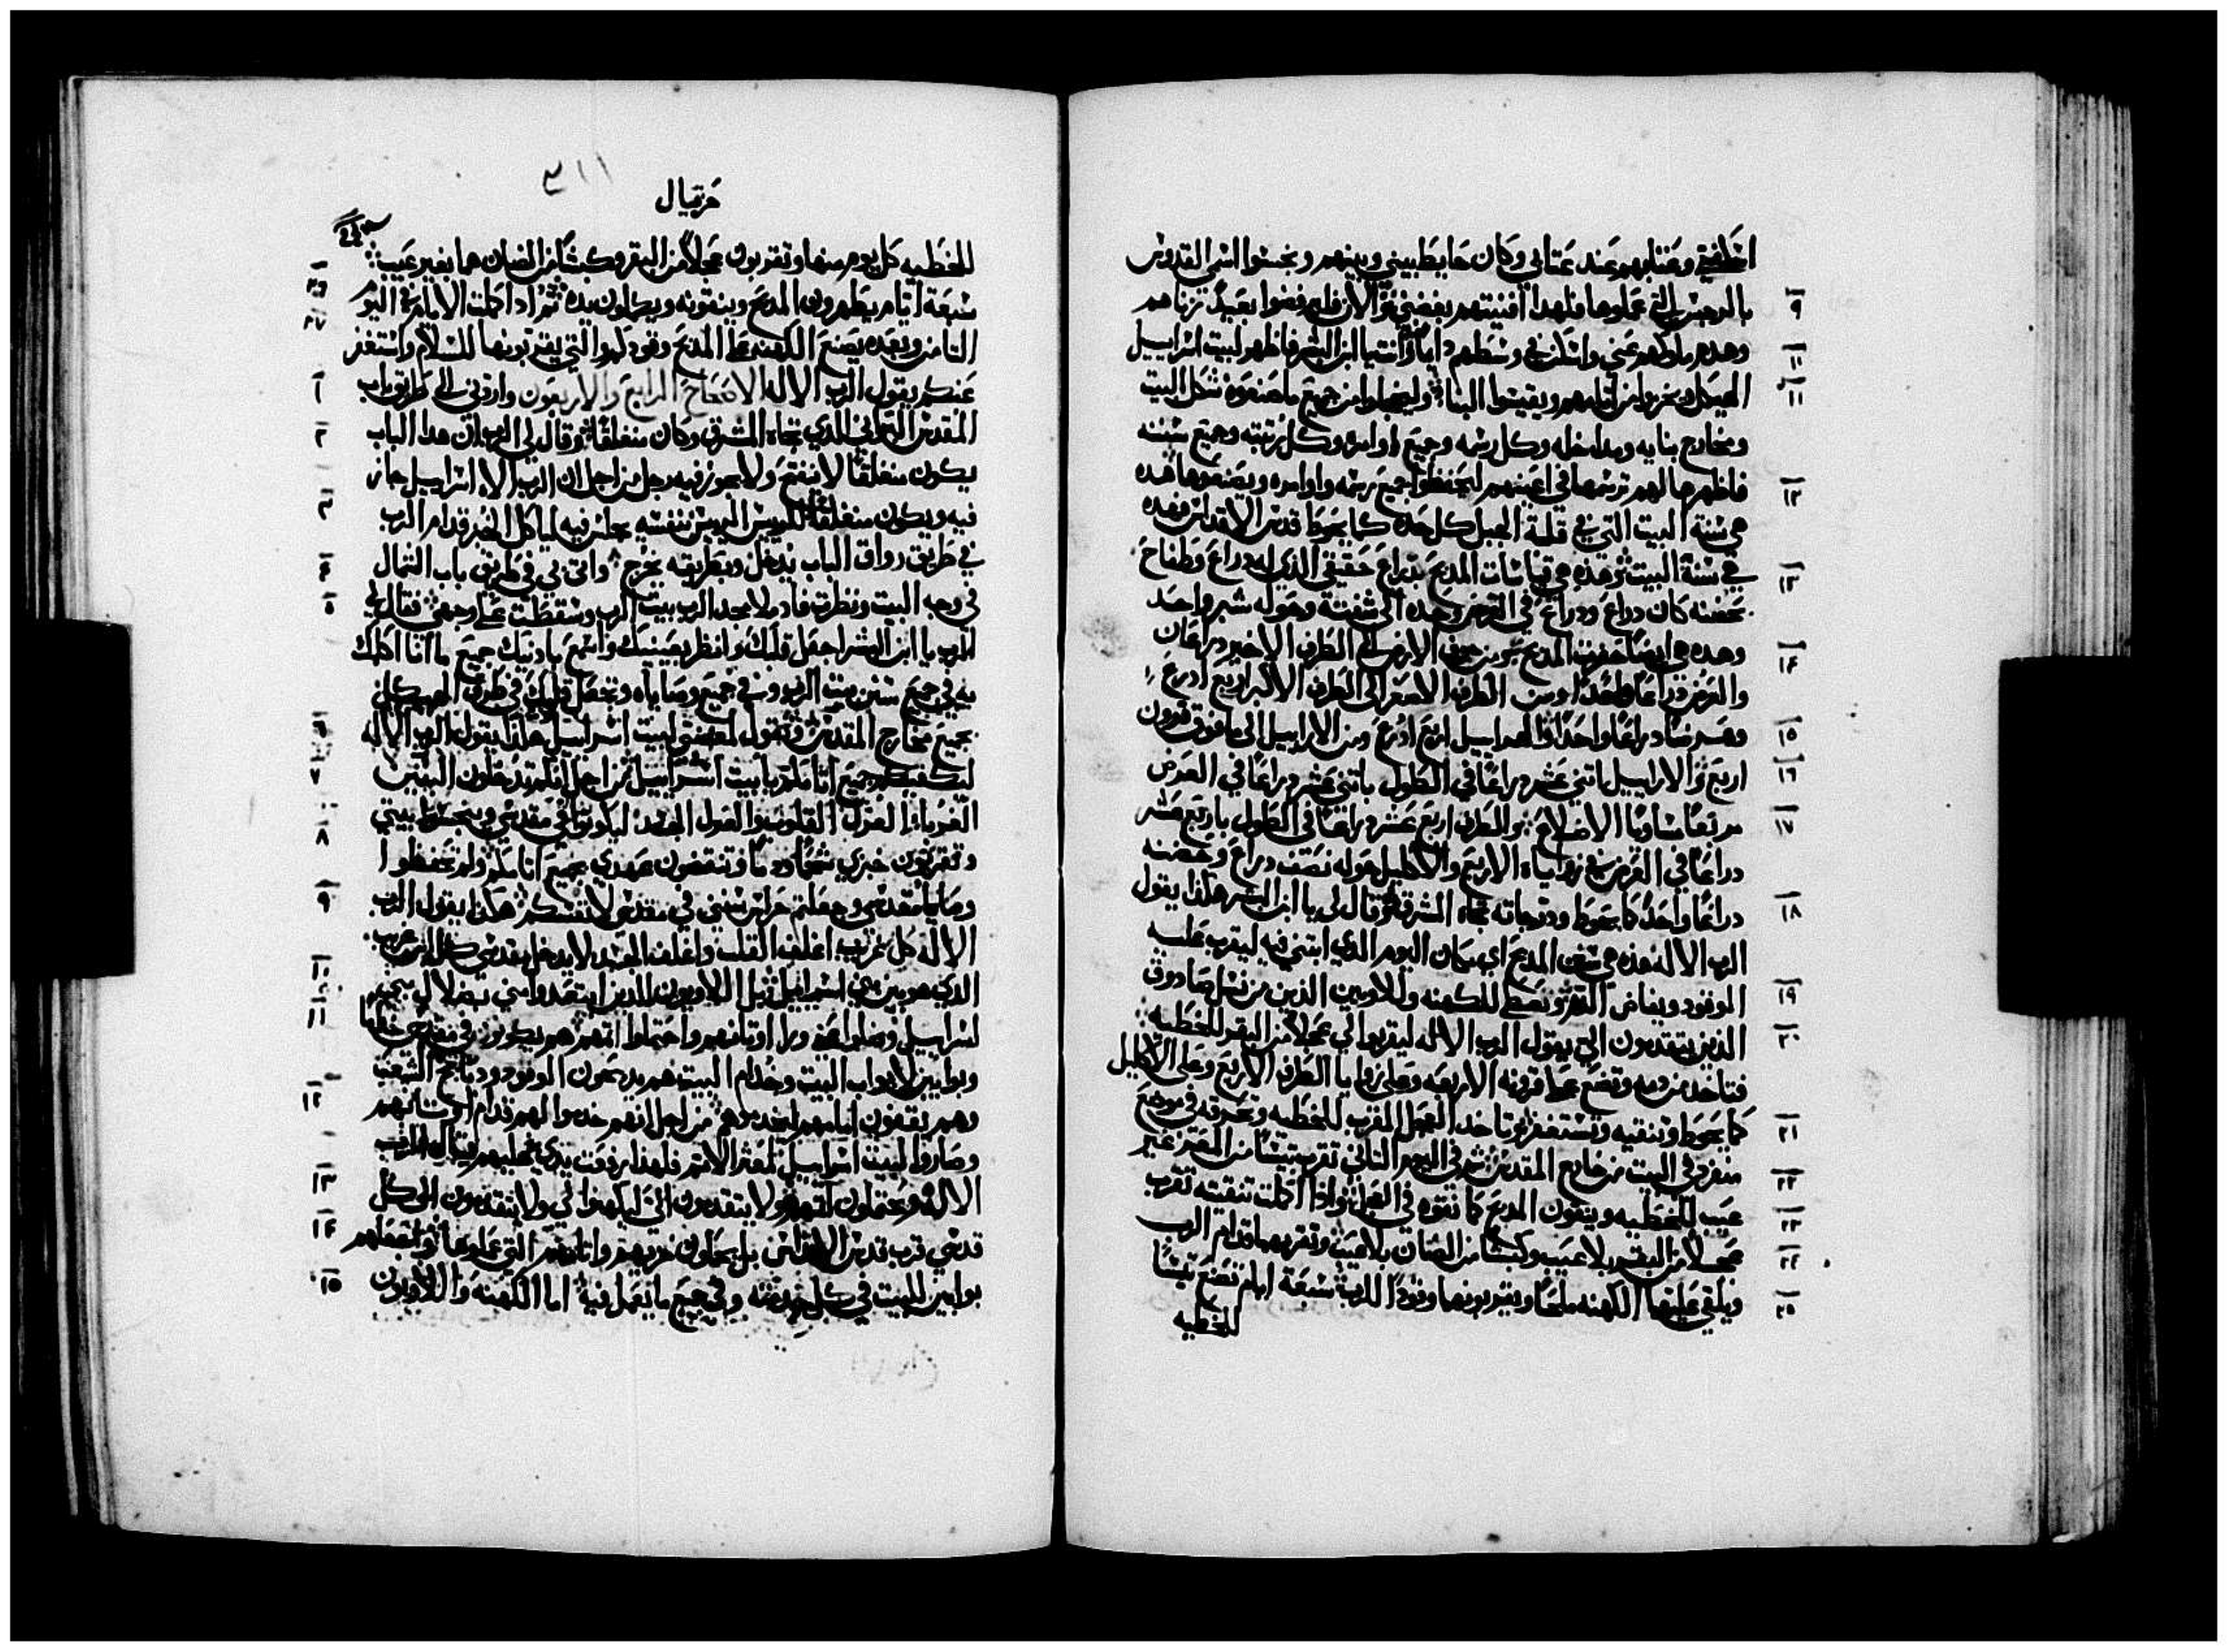 اخلافي وعتابهم عند عتابي وكان حايط بيني وبينهم ونجسوا اسمي القدوس
٩
بالرجس التي عملوها فلهدا افنيتهم بغضبي والان فليرفضوا بعيدا زناهم
١٠
وهده ملكهم عني واسكن في وسطهم دايما وانت يا ابن البشر فاظهر لبيت اسراييل
١١
الهيكل ويخزوا من اتامهم ويقيسوا البنا وليخجلوا من جميع ما صنعوه شكل البيت
ومخارج بنايه ومداخله وكل رسمه وجميع اوامره وكل رتبته وجميع سننه
١٢
فاظهرها لهم ترسمها في اعينهم ليحفظوا جميع رسمه واوامره ويصنعوها هده
هي سنة البيت التي في قلة الجبل كل حده كما يحوط قدس الاقداس فهده
١٣
هي سنة البيت وهذه هي قياسات المدبح بدراع حقيقي الذي له دراع وطناح
حضنه كان دراع ودراع في العرض وحده الى شفته وحوله شبر واحد
١٤
وهده هي ايضا حفرت المدبح ومن جوف الارض الى الطرف الاخير دراعان
والعرض دراعا واحدا ومن الطرف الاصغر الى الطرف الاكبر اربع ادرع
١٥
وعرضا دراعا واحدا والاراييل اربع ادرع ومن الاراييل الى ما فوق قرون
١٦
اربع والاراييل باتني عشر دراعا في الطول باتني عشر دراعا في العرض
١٧
مربعا متساويا الاضلاع والطرف اربع عشر دراعا في الطول باربع عشر
دراعا في العرض في زواياه الاربع والاكليل حوله نصف دراع وحضنه
١٨
دراعا واحدا كما يحوط ودرجاته تجاه المشرق وقال لي يا ابن البشر هكذا يقول
الرب الاله هذه هي سنن المدبح اي مكان اليوم الذي ابتني فيه ليقرب عليه
١٩
الوقود ويفاض الدم وتعطي للكهنه وللاويين الذين من نسل صادوق
٢٠
الذين يتقدمون الي يقول الرب الاله ليقربوا لي عجلا من البقر للخطيه
فتاخد من دمه وتضع على قرونه الاربعه وعلى زوايا الطرف الاربع وعلى الاكليل
٢١
كما يحوط وتنقيه وتستغفر وتاخد العجل المقرب للخطيه وتحرقه في موضع
٢٢
منفرد في البيت من خارج المقدس ثم في اليوم التاني تقرب تيسا من المعز غير
٢٣
عيب للخطيه وينقون المدبح كما نقوه في العجل واذا اكملت تنقيته تقرب
٢٤
عجلا من البقر بلا عيب وكبشا من الضان بلا عيب وتقربهما قدام الرب
٢٥
ويلقي عليهما الكهنه ملحا ويقربونهما وقودا للرب سبعة ايام تضع تيسا
للخطيه
٣١١
حزقيال
للخطيه كل يوم منها وتقربون عجلا من البقر وكبشا من الضان هما بغير عيب
٢٦
سبعة ايام يطهرون المدبح وينقونه ويكملون يده ثم ادا كملت الايام في اليوم
٢٧
التامن وبعده يصنع الكهنه على المدبح وقودكم والتي يقربونها للسلام واستغفر
١
عنكم يقول الرب الاله الاصحاح الرابع والاربعون واردني الى طريق باب
٢
المقدس البراني الذي تجاه المشرق وكان منغلقا وقال لي الرب ان هدا الباب
يكون منغلقا لا ينفتح ولا يجوز فيه رجل من اجل ان الرب الاه اسراييل جاز
٣
فيه ويكون منغلقا للرييس الرييس نفسه يجلس فيه لياكل الخبز قدام الرب
٤
في طريق رواق الباب يدخل وبطريقه يخرج واتى بي في طريق باب الشمال
٥
في وجه البيت ونظرت فادا ملا مجد الرب بيت الرب وسقطت على وجهي فقال لي
الرب يا ابن البشر اجعل قلبك وانظر بعينيك واسمع بادنيك جميع ما انا اكلمك
به في جميع سنن بيت الرب وفي جميع وصاياه وتجعل قلبك في طرق الهيكل في
٦
جميع مخارج المقدس وتقول لمغضبي لبيت اسراييل هكذا يقول الرب الاله
٧
لتكفيكم جميع اتامكم يا بيت اسراييل من اجل انكم تدخلون البنين
الغربا الغرل القلوب والغرل الجسد ليكونوا في مقدسي وينجسوا بيتي
٨
وتقربون خبزي شحما ودما وتنقضون عهدي بجميع اتامكم ولم تحفظوا
٩
وصايا مقدسي وجعلتم حراس سنني في مقدسي لانفسكم هكذا يقول الرب
الاله كل غريب اغلف القلب واغلف الجسد لا يدخل مقدسي كل ابن غريب
١٠
الذي هو بين بني اسراييل بل اللاويون الذين ابتعدوا مني بضلال بني
١١
اسراييل وضلوا عني ورا اوتانهم واحتملوا اتمهم هم يكونون في مقدسي خداما
وبوابين لابواب البيت وخدام البيت هم يدبحون الوقود ودبايح الشعب
١٢
وهم يقفون امامهم ليخدموهم من اجل انهم خدموا لهم قدام اوتانهم
وصاروا لبيت اسراييل لعثرة الاتم فلهذا رفعت يدي عليهم يقول الرب
١٣
الاله ويحملون اتمهم ولا يتقدمون الي ليكهنوا لي ولا يتقدمون الى كل
١٤
قدسي قرب قدس الاقداس بل يحملون خزيهم واتامهم التي عملوها واجعلهم
١٥
بوابين للبيت في كل خدمته وفي جميع ما يعمل فيه اما الكهنه واللاويون